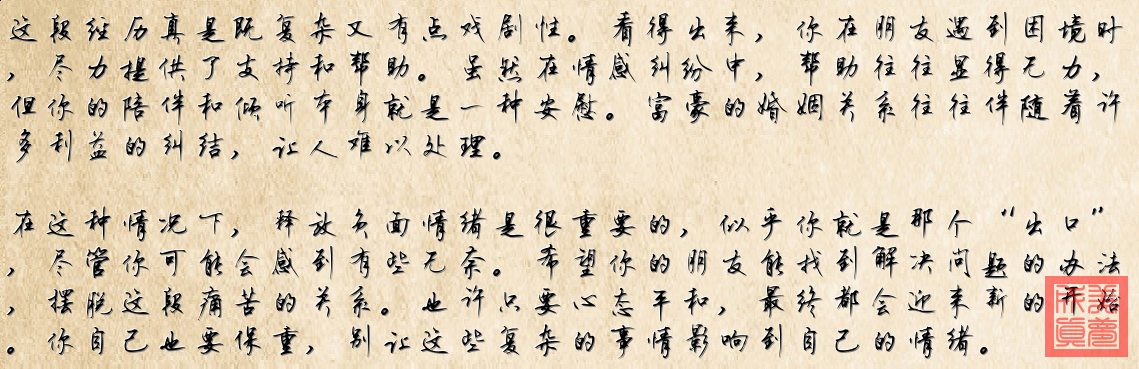 这段经历真是既复杂又有点戏剧性。看得出来，你在朋友遇到困境时
，尽力提供了支持和帮助。虽然在情感纠纷中，帮助往往显得无力，
但你的陪伴和倾听本身就是一种安慰。富豪的婚姻关系往往伴随着许
多利益的纠结，让人难以处理。
在这种情况下，释放负面情绪是很重要的，似乎你就是那个“出口”
，尽管你可能会感到有些无奈。希望你的朋友能找到解决问题的办法
，摆脱这段痛苦的关系。也许只要心态平和，最终都会迎来新的开始
。你自己也要保重，别让这些复杂的事情影响到自己的情绪。